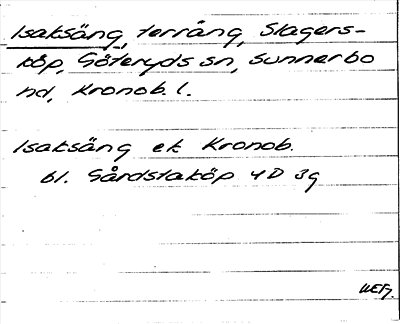 Isaksäng, terräng, Skagers-
köp, Göteryds sn, Sunnerbo
hd, Kronob. l.
Isaksäng ek Kronob.
bl. Gårdstaköp 4D 3g